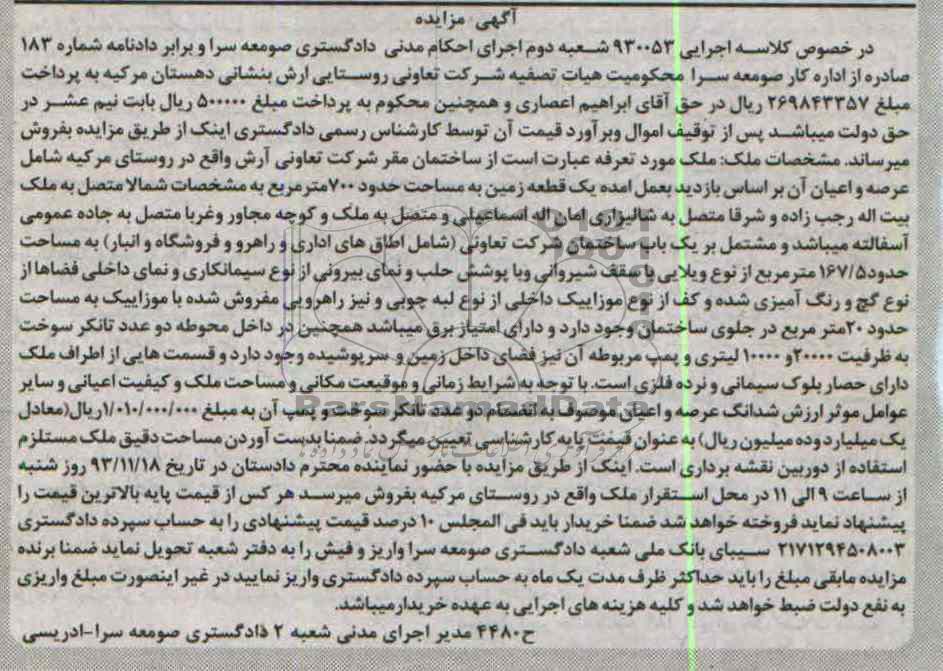 آگهی مزایده
در خصوص کلاسه اجرایی ۹۳۰۰۵۳ شعبه دوم اجرای احکام مدنی دادگستری صومعه سرا و برابر دادنامه شماره ۱۸۳
صادره از اداره کار صومعه سرا محکومیت هیات تصفیه شرکت تعاونی روستایی ارش بنشانی دهستان مرکیه به پرداخت
مبلغ ۲۶۹۸۴۳۳۵۷ ریال در حق آقای ابراهیم اعصاری و همچنین محکوم به پرداخت مبلغ ۵۰۰۰۰۰ ریال بابت نیم عشر در
حق دولت میباشد پس از توقیف اموال وبرآورد قیمت آن توسط کارشناس رسمی دادگستری اینک از طریق مزایده بفروش
میرساند. مشخصات ملک: ملک مورد تعرفه عبارت است از ساختمان مقر شرکت تعاونی آرش واقع در روستای مرکیه شامل
عرصه و اعیان آن بر اساس بازدید بعمل امده یک قطعه زمین به مساحت حدود ۷۰۰مترمربع به مشخصات شمالا متصل به ملک
بیت اله رجب زاده و شرقا متصل به شالیزاری امان اله اسماعیلی و متصل به ملک و کوچه مجاور وغربا متصل به جاده عمومی
آسفالته میباشد و مشتمل بر یک باب ساختمان شرکت تعاونی (شامل اطاق های اداری و راهرو و فروشگاه و انبار) به مساحت
حدود۱۶۷/۵ مترمربع از نوع ویلایی با سقف شیروانی وبا پوشش حلب و نمای بیرونی از نوع سیمانکاری و نمای داخلی فضاها از
نوع گچ و رنگ آمیزی شده و کف از نوع موزاییک داخلی از نوع لبه چوبی و نیز راهرویی مفروش شده با موزاییک به مساحت
حدود ۲۰متر مربع در جلوی ساختمان وجود دارد و دارای امتیاز برق میباشد همچنین در داخل محوطه دو عدد تانکر سوخت
به ظرفیت ۲۰۰۰۰و ۱۰۰۰۰ لیتری و پمپ مربوطه آن نیز فضای داخل زمین و سرپوشیده وجود دارد و قسمت هایی از اطراف ملک
دارای حصار بلوک سیمانی و نرده فلزی است. با توجه به شرایط زمانی و موقیعت مکانی و مساحت ملک و کیفیت اعیانی و سایر
عوامل موثر ارزش شدانگ عرصه و اعیان موصوف به انضمام دو عدد تانکر سوخت و پمپ آن به مبلغ ۱/۰۱۰/۰۰۰/۰۰۰ریال(معادل
یک میلیارد وده میلیون ریال) به عنوان قیمت پایه کارشناسی تعیین میگردد. ضمنا بدست آوردن مساحت دقیق ملک مستلزم
استفاده از دوربین نقشه برداری است. اینک از طریق مزایده با حضور نماینده محترم دادستان در تاریخ ۹۳/۱۱/۱۸ روز شنبه
از ساعت ۹ الی ۱۱ در محل استقرار ملک واقع در روستای مرکیه بفروش میرسد هر کس از قیمت پایه بالاترین قیمت را
پیشنهاد نماید فروخته خواهد شد ضمنا خریدار باید فی المجلس ۱۰ درصد قیمت پیشنهادی را به حساب سپرده دادگستری
۲۱۷۱۲۹۴۵۰۸۰۰۳ سیبای بانک ملی شعبه دادگستری صومعه سرا واریز و فیش را به دفتر شعبه تحویل نماید ضمنا برنده
مزایده مابقی مبلغ را باید حداکثر ظرف مدت یک ماه به حساب سپرده دادگستری واریز نمایید در غیر اینصورت مبلغ واریزی
به نفع دولت ضبط خواهد شد و کلیه هزینه های اجرایی به عهده خریدار میباشد.
ح۴۴۸۰ مدیر اجرای مدنی شعبه ۲ دادگستری صومعه سرا-ادریسی
ParsNamadData